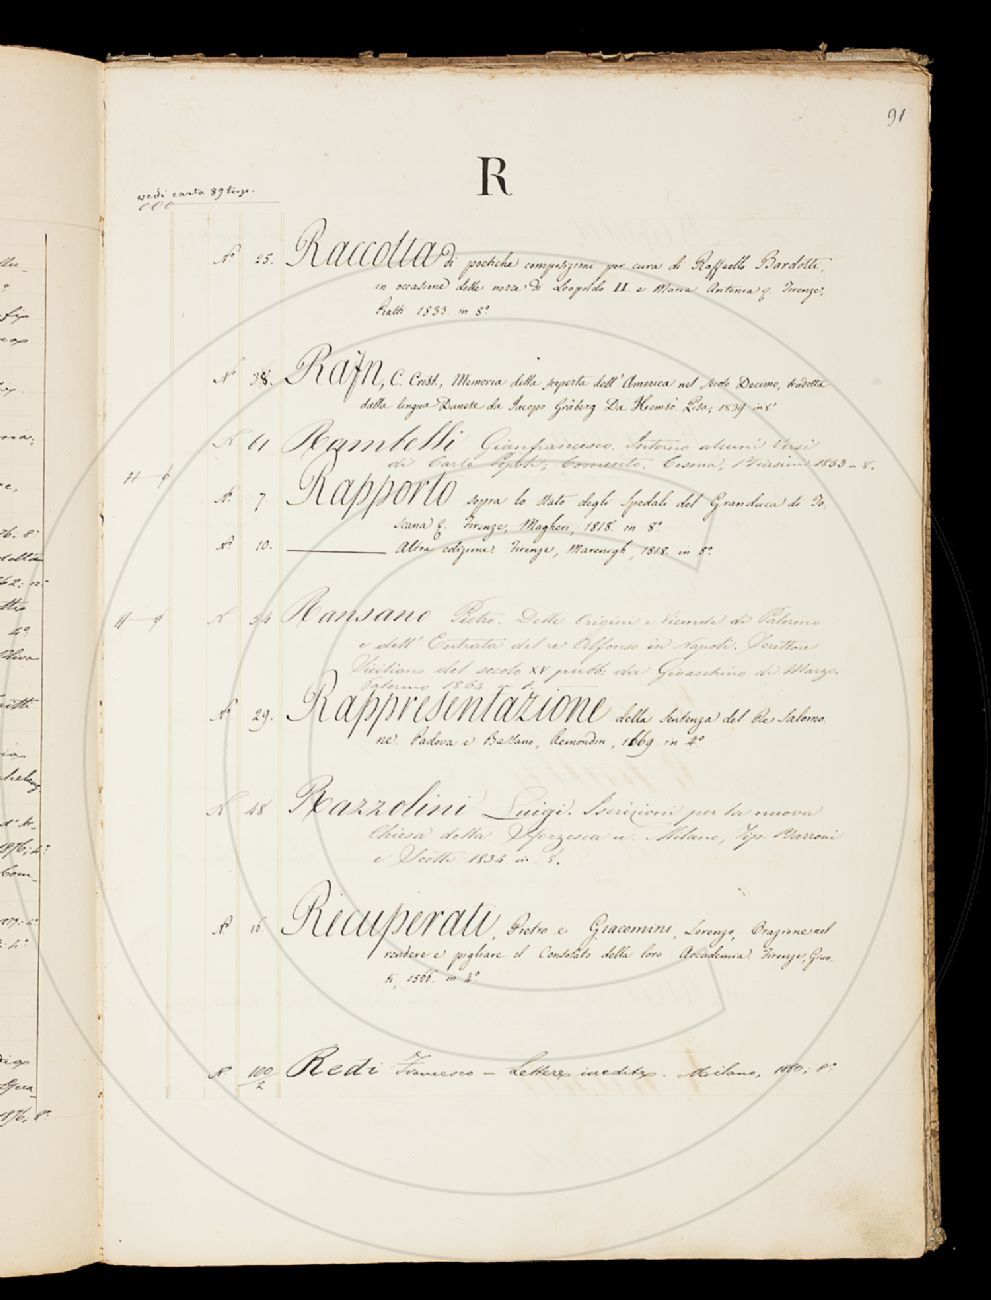 91
R
vedi carta 89 tergo.
N° 25. Raccolta di poetiche composizioni per cura di Raffaello Bardotti,
in occasione delle nozze di Leopoldo II. e Maria Antonia &. Firenze,
Piatti 1833. in 8°
N° 38. Rafn, C. Crist., Memoria della scoperta dell'America nel secolo Decimo, tradotta
dalla lingua Danese da Jacopo Gråberg Da Hemsö. Pisa, 1839 in 8°
N 61 Rambelli Gianfrancesco. Intorno alcuni Versi
di Carlo Pepoli, Comento. Cesena, 1833 - 8.
N° 7 Rapporto sopra lo stato degli Spedali del Granduca di To
scana &. Firenze, Magheri, 1818. in 8°
N° 10. Altra edizione. Firenze, Marenigh, 1818. in 8°.
N 54 Ransano Pietro. Delle Origini e Vicende di Palermo
e dell'Entrata del re Alfonso in Napoli. Scrittura
Siciliana del secolo XV pubb: da Gioacchino di Marzo.
Palermo 1864
N° 29. Rappresentazione della Sentenza del Re Salomo.
ne. Padova e Bassano, Remondin, 1669 in 4°
N 48 Razzolini Luigi. Iscrizioni per la nuova
Chiesa della Sforzesca. Milano, Tip.
e 1834 in 8.
N° 16 Ricuperati, Pietro e Giacomini, Lorenzo, Orazione nel
rendere e pigliare il Consolato della loro Accademia. Firenze, Giun
ti, 1566. in 4°
N° 100/2 Redi Francesco – Lettere inedite. Milano, 8°